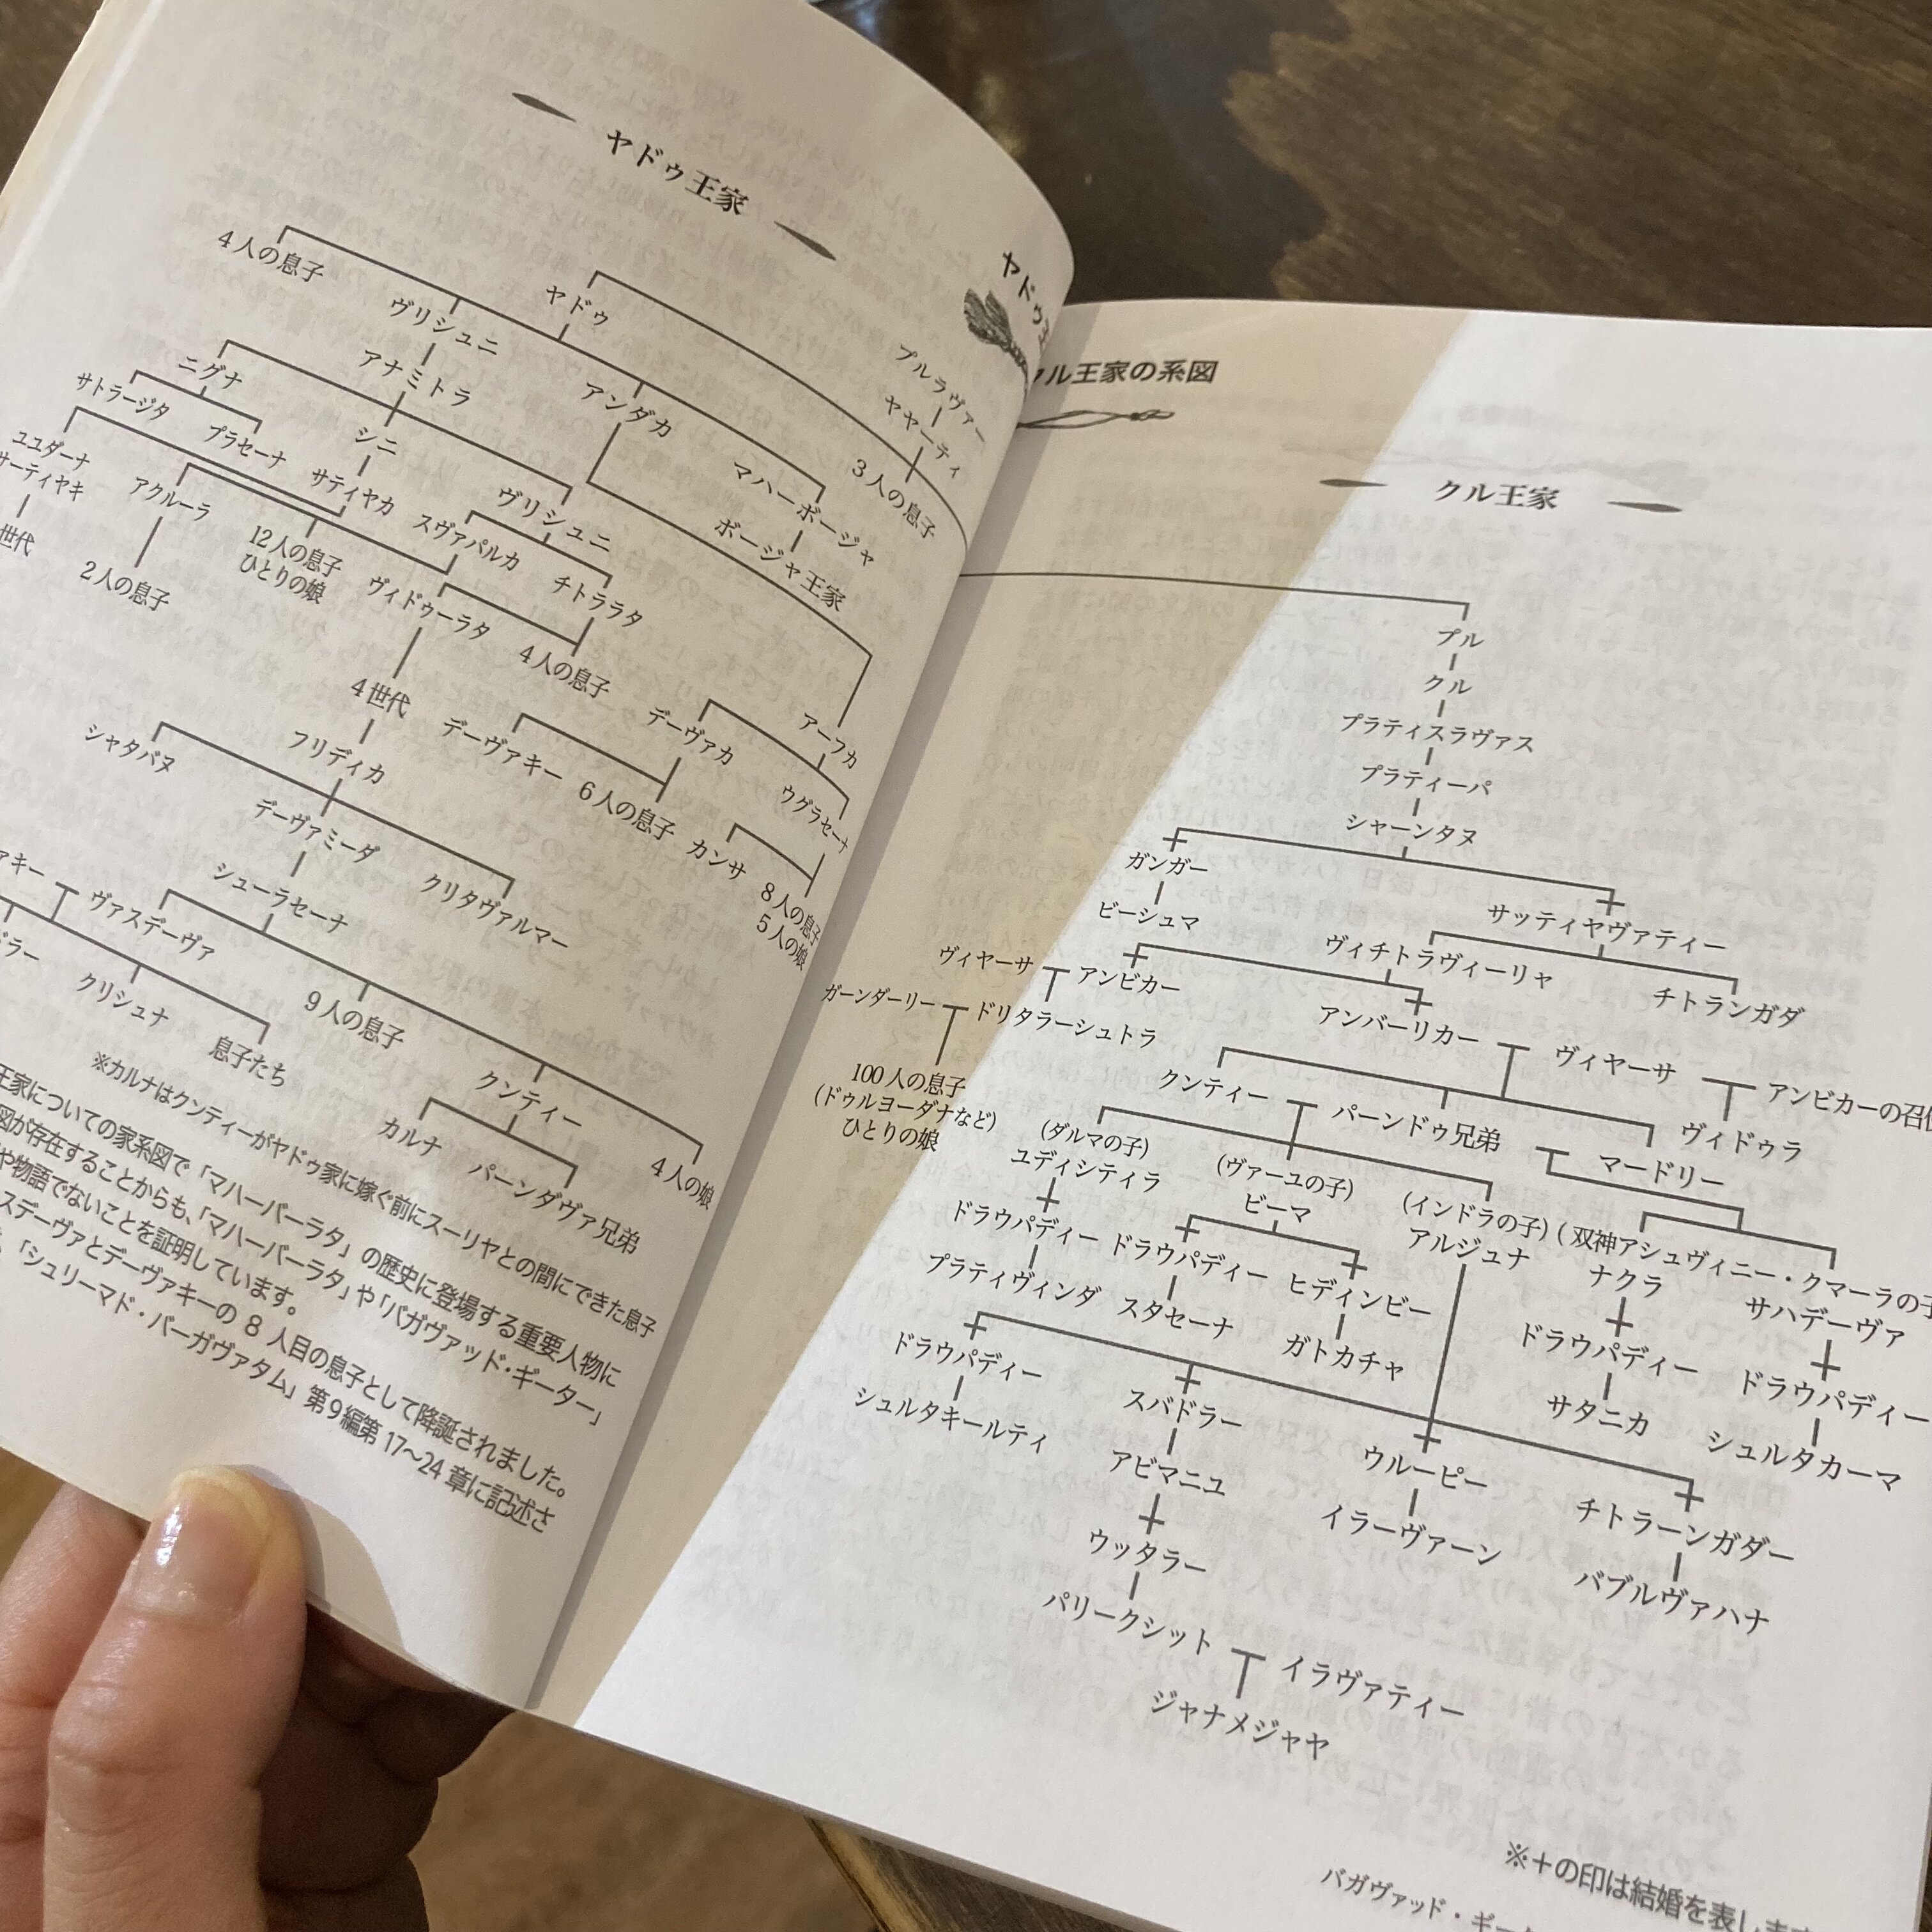 ヤドゥ王家
4人の息子
ヴリシュニ
ヤドゥ
アンダカ
マハーボージャ
ボージャ王家
プルラヴァー
ヤヤーティ
3人の息子
アナミトラ
ニグナ
サトラージタ
プラセーナ
シニ
ヴリシュニ
ユユダーナ
サーティヤキ
世代
アクルーラ
2人の息子
サティヤカ
12人の息子
ひとりの娘
スヴァパルカ
チトララタ
ヴィドゥーラタ
4人の息子
4世代
アーフカ
デーヴァカ
ウグラセーナ
デーヴァキー
6人の息子
カンサ
8人の息子
5人の娘
シャタバヌ
フリディカ
デーヴァミーダ
クリタヴァルマー
シューラセーナ
ヴァスデーヴァ
9人の息子
クリシュナ
息子たち
クンティー
カルナ
パーンダヴァ兄弟
4人の娘
※カルナはクンティーがヤドゥ家に嫁ぐ前にスーリヤとの間にできた息子
王家についての家系図で「マハーバーラタ」の歴史に登場する重要人物に
図が存在することからも、「マハーバーラタ」や「バガヴァッド・ギーター」
や物語でないことを証明しています。
スデーヴァとデーヴァキーの 8 人目の息子として降誕されました。
「シュリーマド・バーガヴァタム」第9編第 17〜24 章に記述さ
ヤドゥ王
クル王家の系図
クル王家
プル
クル
プラティスラヴァス
プラティーパ
シャーンタヌ
ガンガー
ビーシュマ
サッティヤヴァティー
ヴィチトラヴィーリヤ
チトランガダ
ヴィヤーサ
アンビカー
アンバーリカー
ヴィヤーサ
ガーンダーリー
ドリタラーシュトラ
アンビカーの召使
100人の息子
(ドゥルヨーダナなど)
ひとりの娘
クンティー
パーンドゥ兄弟
マードリー
ヴィドゥラ
(ダルマの子)
ユディシティラ
(ヴァーユの子)
ビーマ
(インドラの子)
アルジュナ
(双神アシュヴィニー・クマーラの子
ナクラ
サハデーヴァ
ドラウパディー
プラティヴィンダ
ドラウパディー
スタセーナ
ヒディンビー
ガトカチャ
ドラウパディー
サタニカ
ドラウパディー
シュルタカーマ
ドラウパディー
シュルタキールティ
スバドラー
アビマニユ
ウルーピー
イラーヴァーン
チトラーンガダー
バブルヴァハナ
ウッタラー
パリークシット
イラヴァティー
ジャナメジャヤ
※+の印は結婚を表します
バガヴァッド・ギータ